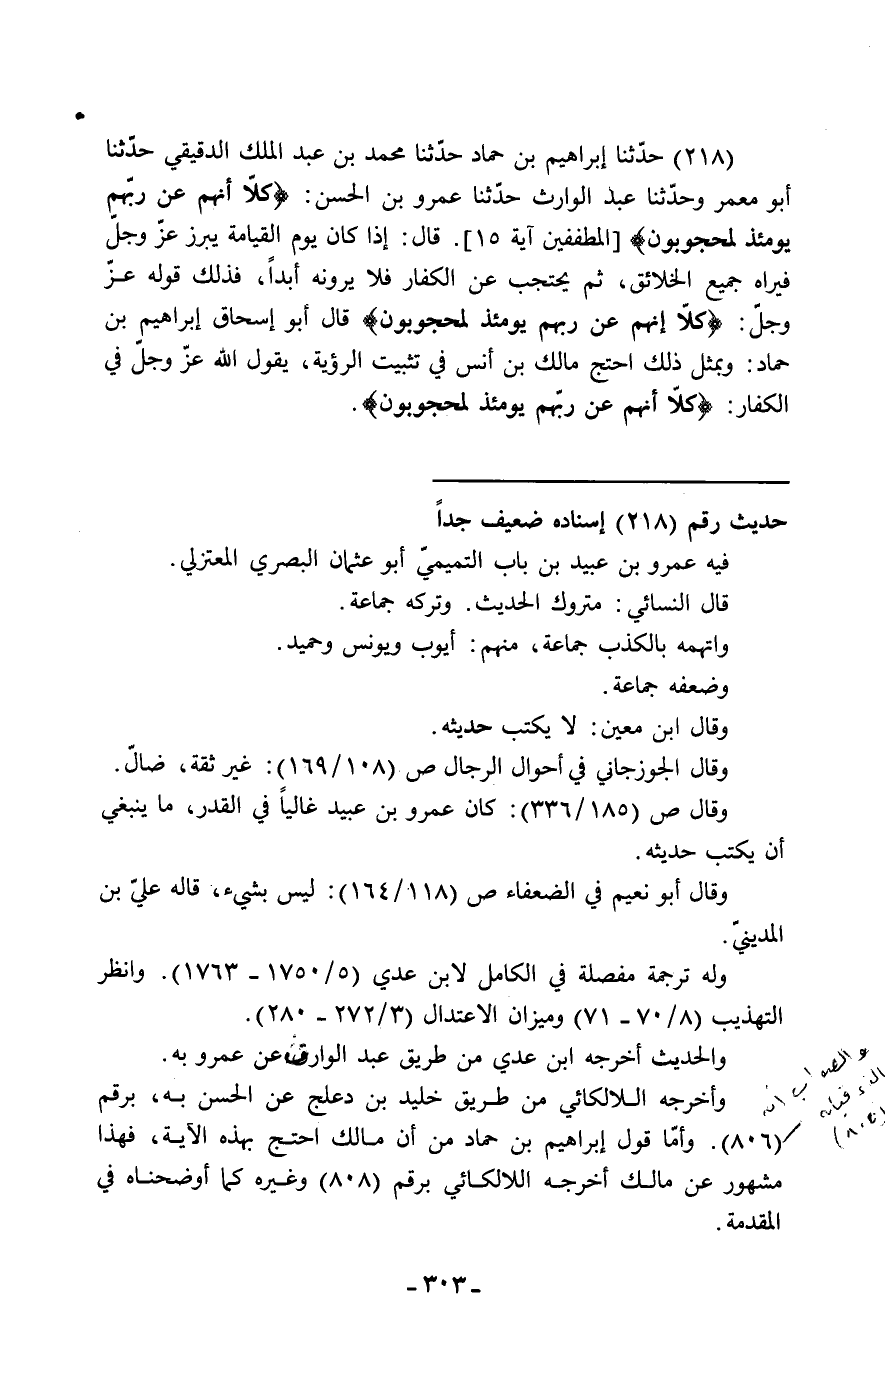 (٢١٨) حدّثنا إبراهيم بن حماد حدّثنا محمد بن عبد الملك الدقيقي حدّثنا
أبو معمر وحدّثنا عبد الوارث حدّثنا عمرو بن الحسن: ﴿كلّا أنهم عن ربّهم
يومئذ لمحجوبون﴾ [المطففين آية ١٥]. قال: إذا كان يوم القيامة يبرز عزّ وجلّ
فيراه جميع الخلائق، ثم يحتجب عن الكفار فلا يرونه أبداً، فذلك قوله عـزّ
وجلّ: ﴿كلّا إنهم عن ربهم يومئذ لمحجوبون﴾ قال أبو إسحاق إبراهيم بن
حماد: وبمثل ذلك احتج مالك بن أنس في تثبيت الرؤية، يقول الله عزّ وجلّ في
الكفار: ﴿كلّا أنهم عن ربّهم يومئذ لمحجوبون﴾.
حديث رقم (٢١٨) إسناده ضعيف جداً
فيه عمرو بن عبيد بن باب التميميّ أبو عثمان البصري المعتزلي.
قال النسائي: متروك الحديث. وتركه جماعة.
واتهمه بالكذب جماعة، منهم: أيوب ويونس وحميد.
وضعفه جماعة.
وقال ابن معين: لا يكتب حديثه.
وقال الجوزجاني في أحوال الرجال ص (١٦٩/١٠٨): غير ثقة، ضالّ.
وقال ص (٣٣٦/١٨٥): كان عمرو بن عبيد غالياً في القدر، ما ينبغي
أن يكتب حديثه.
وقال أبو نعيم في الضعفاء ص (١٦٤/١١٨): ليس بشيء، قاله عليّ بن
المدينيّ.
وله ترجمة مفصلة في الكامل لابن عدي (١٧٥٠/٥ ـ ١٧٦٣). وانظر
التهذيب (٧٠/٨ ـ ٧١) وميزان الاعتدال (٢٧٢/٣ ـ ٢٨٠).
والحديث أخرجه ابن عدي من طريق عبد الوارث عن عمرو به.
وأخرجه الـلالكائي من طـريق خليد بن دعلج عن الحسن بـه، برقم
(٨٠٦). وأمّا قول إبراهيم بن حماد من أن مـالك احتـج بهذه الآيـة، فهذا
مشهور عن مالـك أخرجـه اللالكـائي برقم (٨٠٨) وغـيره كما أوضحنـاه في
المقدمة.
ـ ٣٠٣ ـ